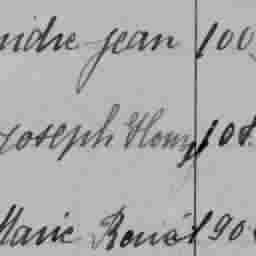 ndre Jean 100
Joseph Henry 108
Marie René 190